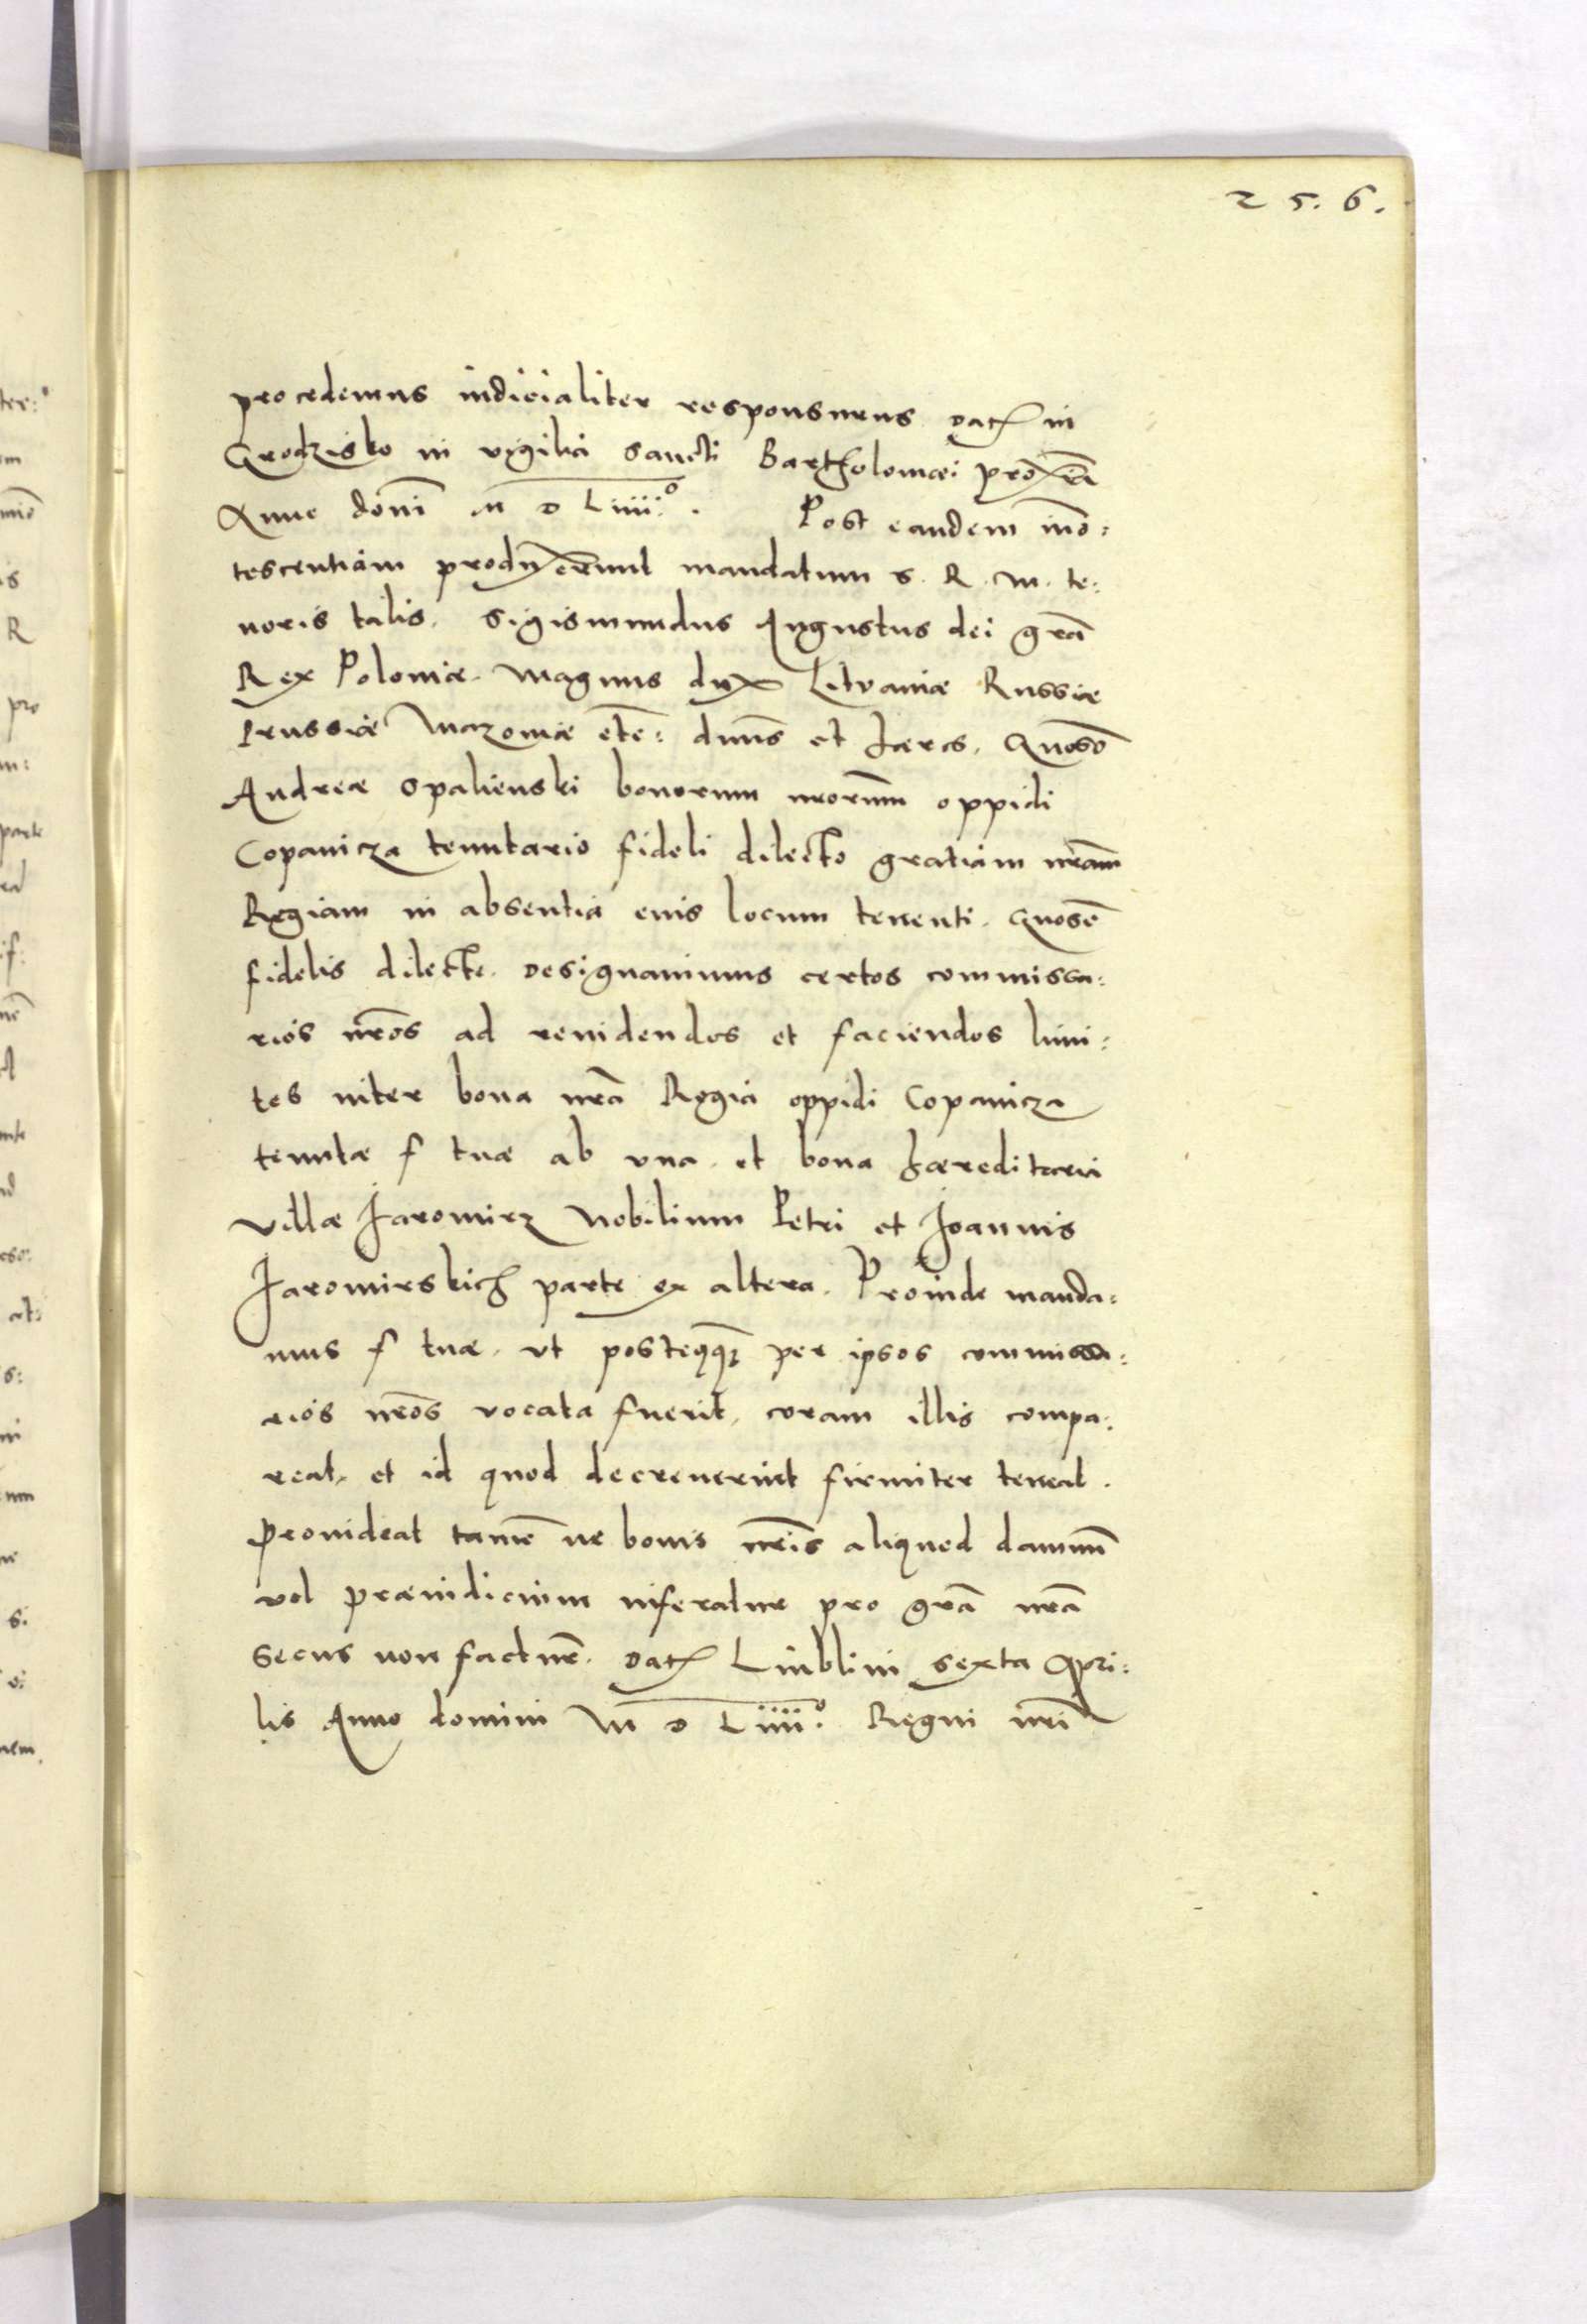 2 5. 6.
procedemus iudicialiter responsurus Datẽ in
Grodzisko in vigilia Sancti Bartholomæi proxĩa
Anno domĩ M D Liiii.º. Post eandem inno:
tescentiam produxerunt mandatum S. R. M. te:
noris talis. Sigismundus Augustus dei grã
Rex Poloniæ. Magnus dux Litvaniæ Russiæ
Prussiæ Mazoviæ etc̃: dnũs et hæres. Gnoso͂
Andreæ Opalienski bonorum nr̃orum oppidi
Copanicza tenutario fideli dilecto gratiam nr̃am
Regiam in absentia eius locum tenenti. Gnose͂
fidelis dilecte. Designavimus certos commissa:
rios nr̃os ad revidendos et faciendos limi:
tes inter bona nr̃a Regia oppidi Copanicza
tenutæ f tuæ ab vna. et bona hæreditaria
villæ Jaromirz Nobilium Petri et Joannis
Jaromirskich parte ex altera. Proinde manda:
mus f tuæ. vt posteqq̃ per ipsos commissa:
rios nr̃os vocata fuerit, coram illis compa:
reat. et id quod decreverint firmiter teneat.
Provideat tame͂ ne bonis nr̃is aliquod damnum͂
vel præiudicium inferatur pro grã nr̃a
Secus non factur͂. Datẽ Linblini Sexta Apri:
lis Anno domini M D Liiii.º Regni nr̃i